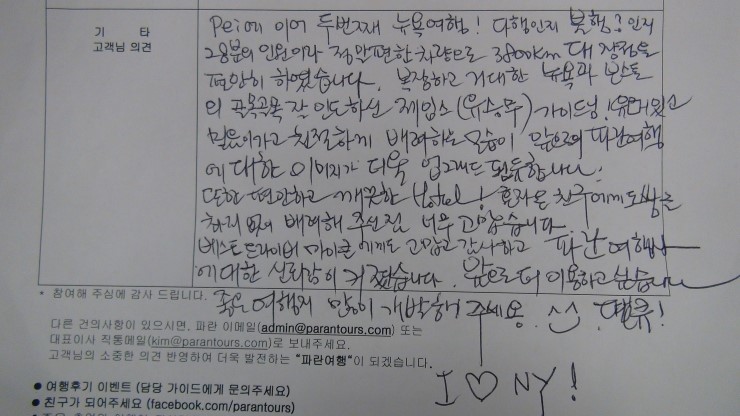 기 타
고객님 의견
Pei에 이어 두번째 뉴욕여행! 다행인지 불행? 인지
28분의 인원이라 정말편한차량으로 3800km 대 장정을
편안히 하였습니다. 복잡하고 거대한 뉴욕과 보스톤
의 곡목곡목 잘 인도하신 제임스(유승무) 가이드님! 유머있고
믿음이가고 친절하게 배려하는 모습이 앞으로의 파란여행
에 대한 이미지가 더욱 업그레드 됨듯합니다!
또한 편안하고 깨끗한 Hotel! 혼자온 친구에게도
하지 않고 배려해 주신점 너무 고맙습니다.
베스트 드라이버 마이클 에게도 고맙고 감사하고 파란여행사
에 대한 신뢰감이 커졌습니다. 앞으로 더 이용하고 싶습니다
* 참여해 주심에 감사 드립니다. 좋은 여행지 많이 개발해 주세용.
다른 건의사항이 있으시면, 파란 이메일(admin@parantours.com) 또는
대표이사 직통메일(kim@parantours.com)로 보내주세요.
고객님의 소중한 의견 반영하여 더욱 발전하는 "파란여행"이 되겠습니다.
I ♡ NY !
● 여행후기 이벤트 (담당 가이드에게 문의주세요)
● 친구가 되어주세요 (facebook.com/parantours)